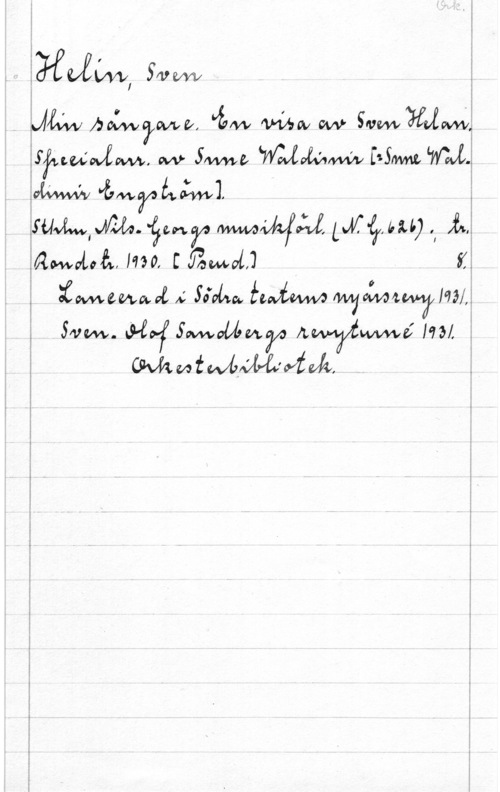 Ork.
Helin, Sven
Min sångare. En visa av Sven Helan.
Specialarr. av Sune Waldimir [=Sune Wal-
dimir Engström].
Sthlm, Nils-Georgs musikförl. (N.G. 626) ; tr.
Rondotr. 1930. [Pseud.] 8.
Lancerad i Södra teaterns nyårsrevy 1931.
Sven-Olof Sandbergs revyturné 1931.
Orkesterbibliotek.